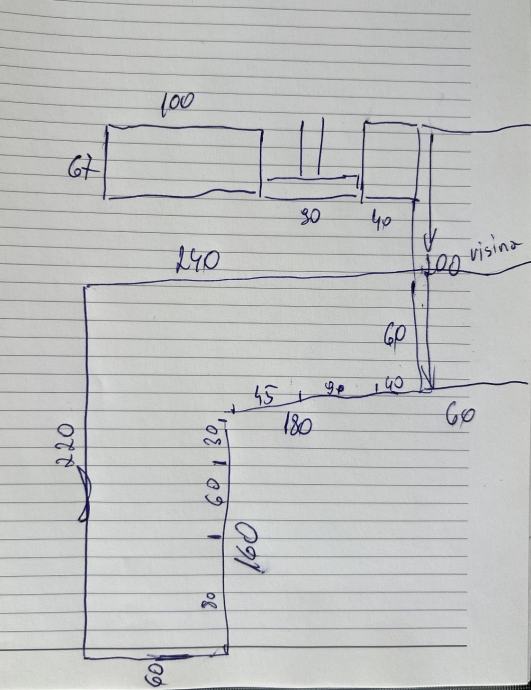 100
67
90 40
240
100 visina
60
45 90 40
180 60
30
220
60
160
80
60